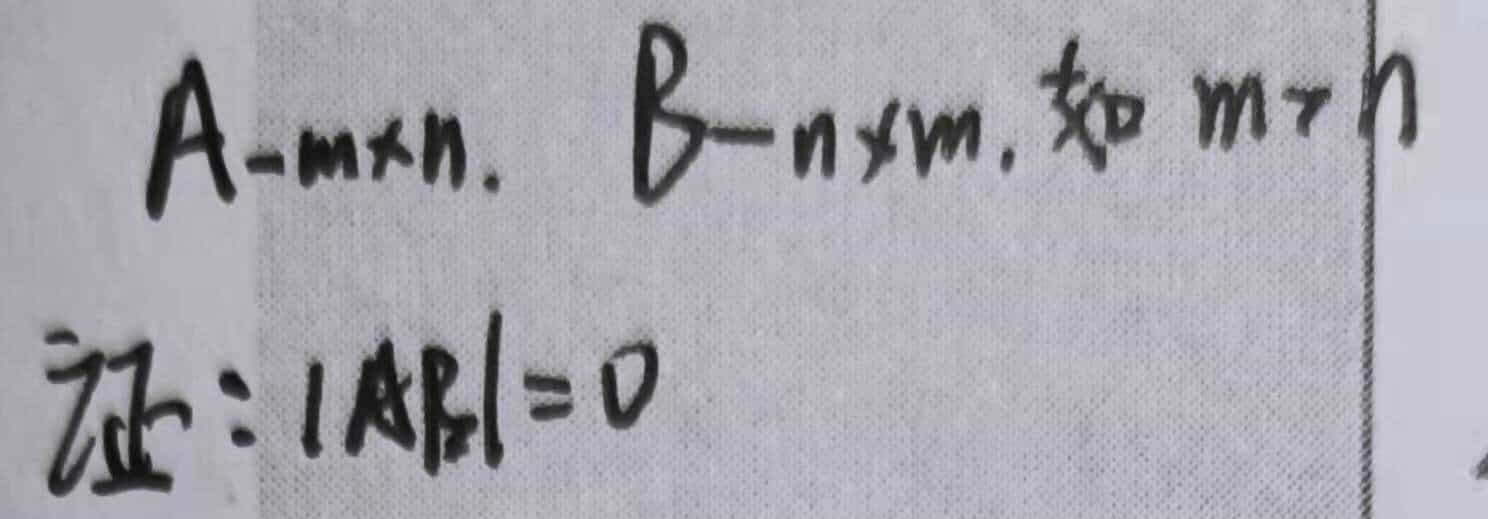 A-m×n. B-n×m. 如 m>n
证:|AB|=0